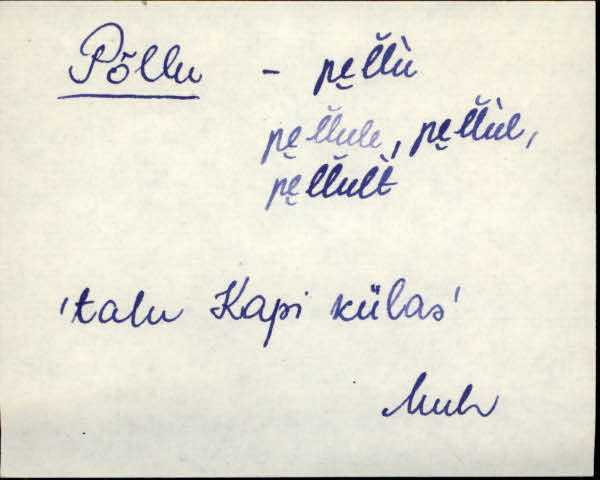 Põllu - pe̬l̆l̆ù
pe̬l̆l̆ule, pe̬l̆l̆ùl,
pe̬l̆l̆ul̀t
'talu Kapi külas'
Muh